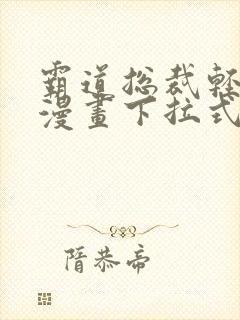 霸道总裁輕
漫畫下拉式
隋恭帝